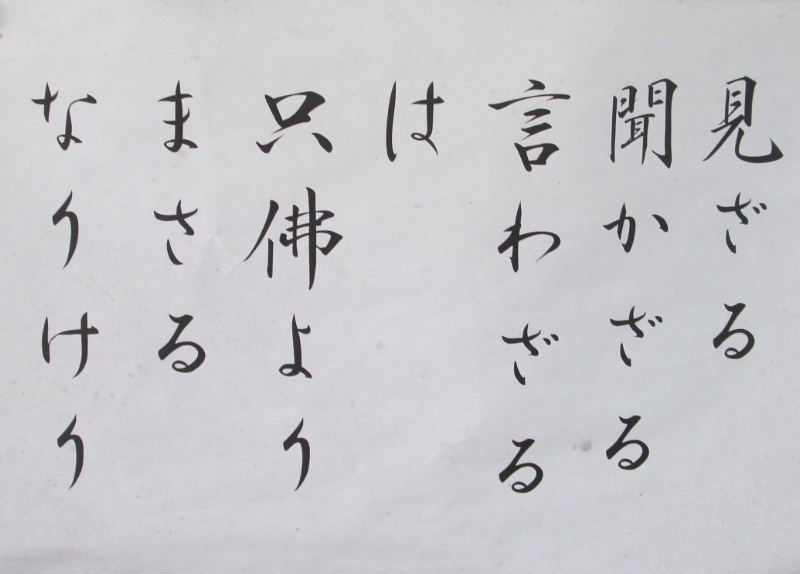 見ざる
聞かざる
言わざる
は
只佛より
まさる
なりけり